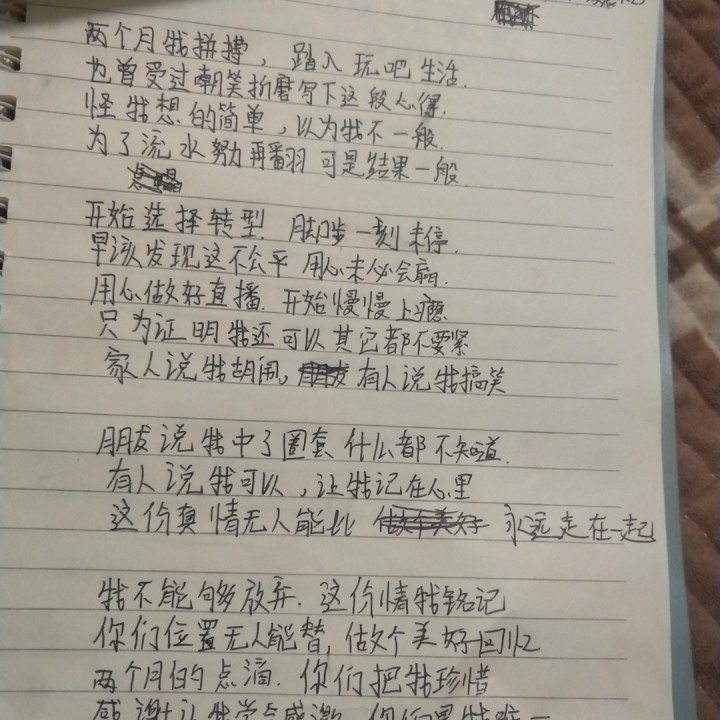 两个月我拼搏，踏入玩吧生活.
也曾受过嘲笑折磨写下这段心得.
怪我想的简单，以为我不一般.
为了流水努再翻羽可是结果一般.
开始选择转型. 脚步一刻未停.
早该发现这不公平 用心未必会赢.
用心做好直播. 开始慢慢上瘾
只为证明我还可以其它都不要紧
家人说我胡闹，有人说我搞笑
朋友说我中了圈套 什么都不知道.
有人说我可以，让我记在心里
这份真情无人能比 永远走在一起
我不能够放弃. 这份情我铭记
你们位置无人能替，做个美好回忆
两个月的点滴. 你们把我珍惜
感谢让我学会感激 你们是我唯一